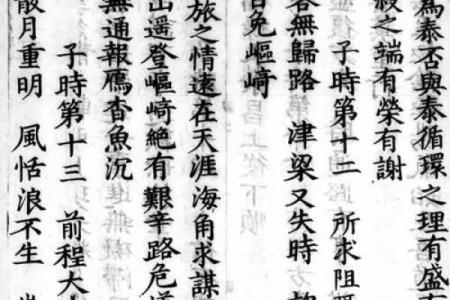 為泰否與泰循環之理有盛
之端有榮有謝
子時第十二 所求阻
無歸路 津梁又失時
免嶇﨑
旅之情遠在天涯海角求謀
山遥登嶇﨑絶有艱辛路危
無通報鴈杳魚沉
子時第十三 前程大
散月重明 風恬浪不生